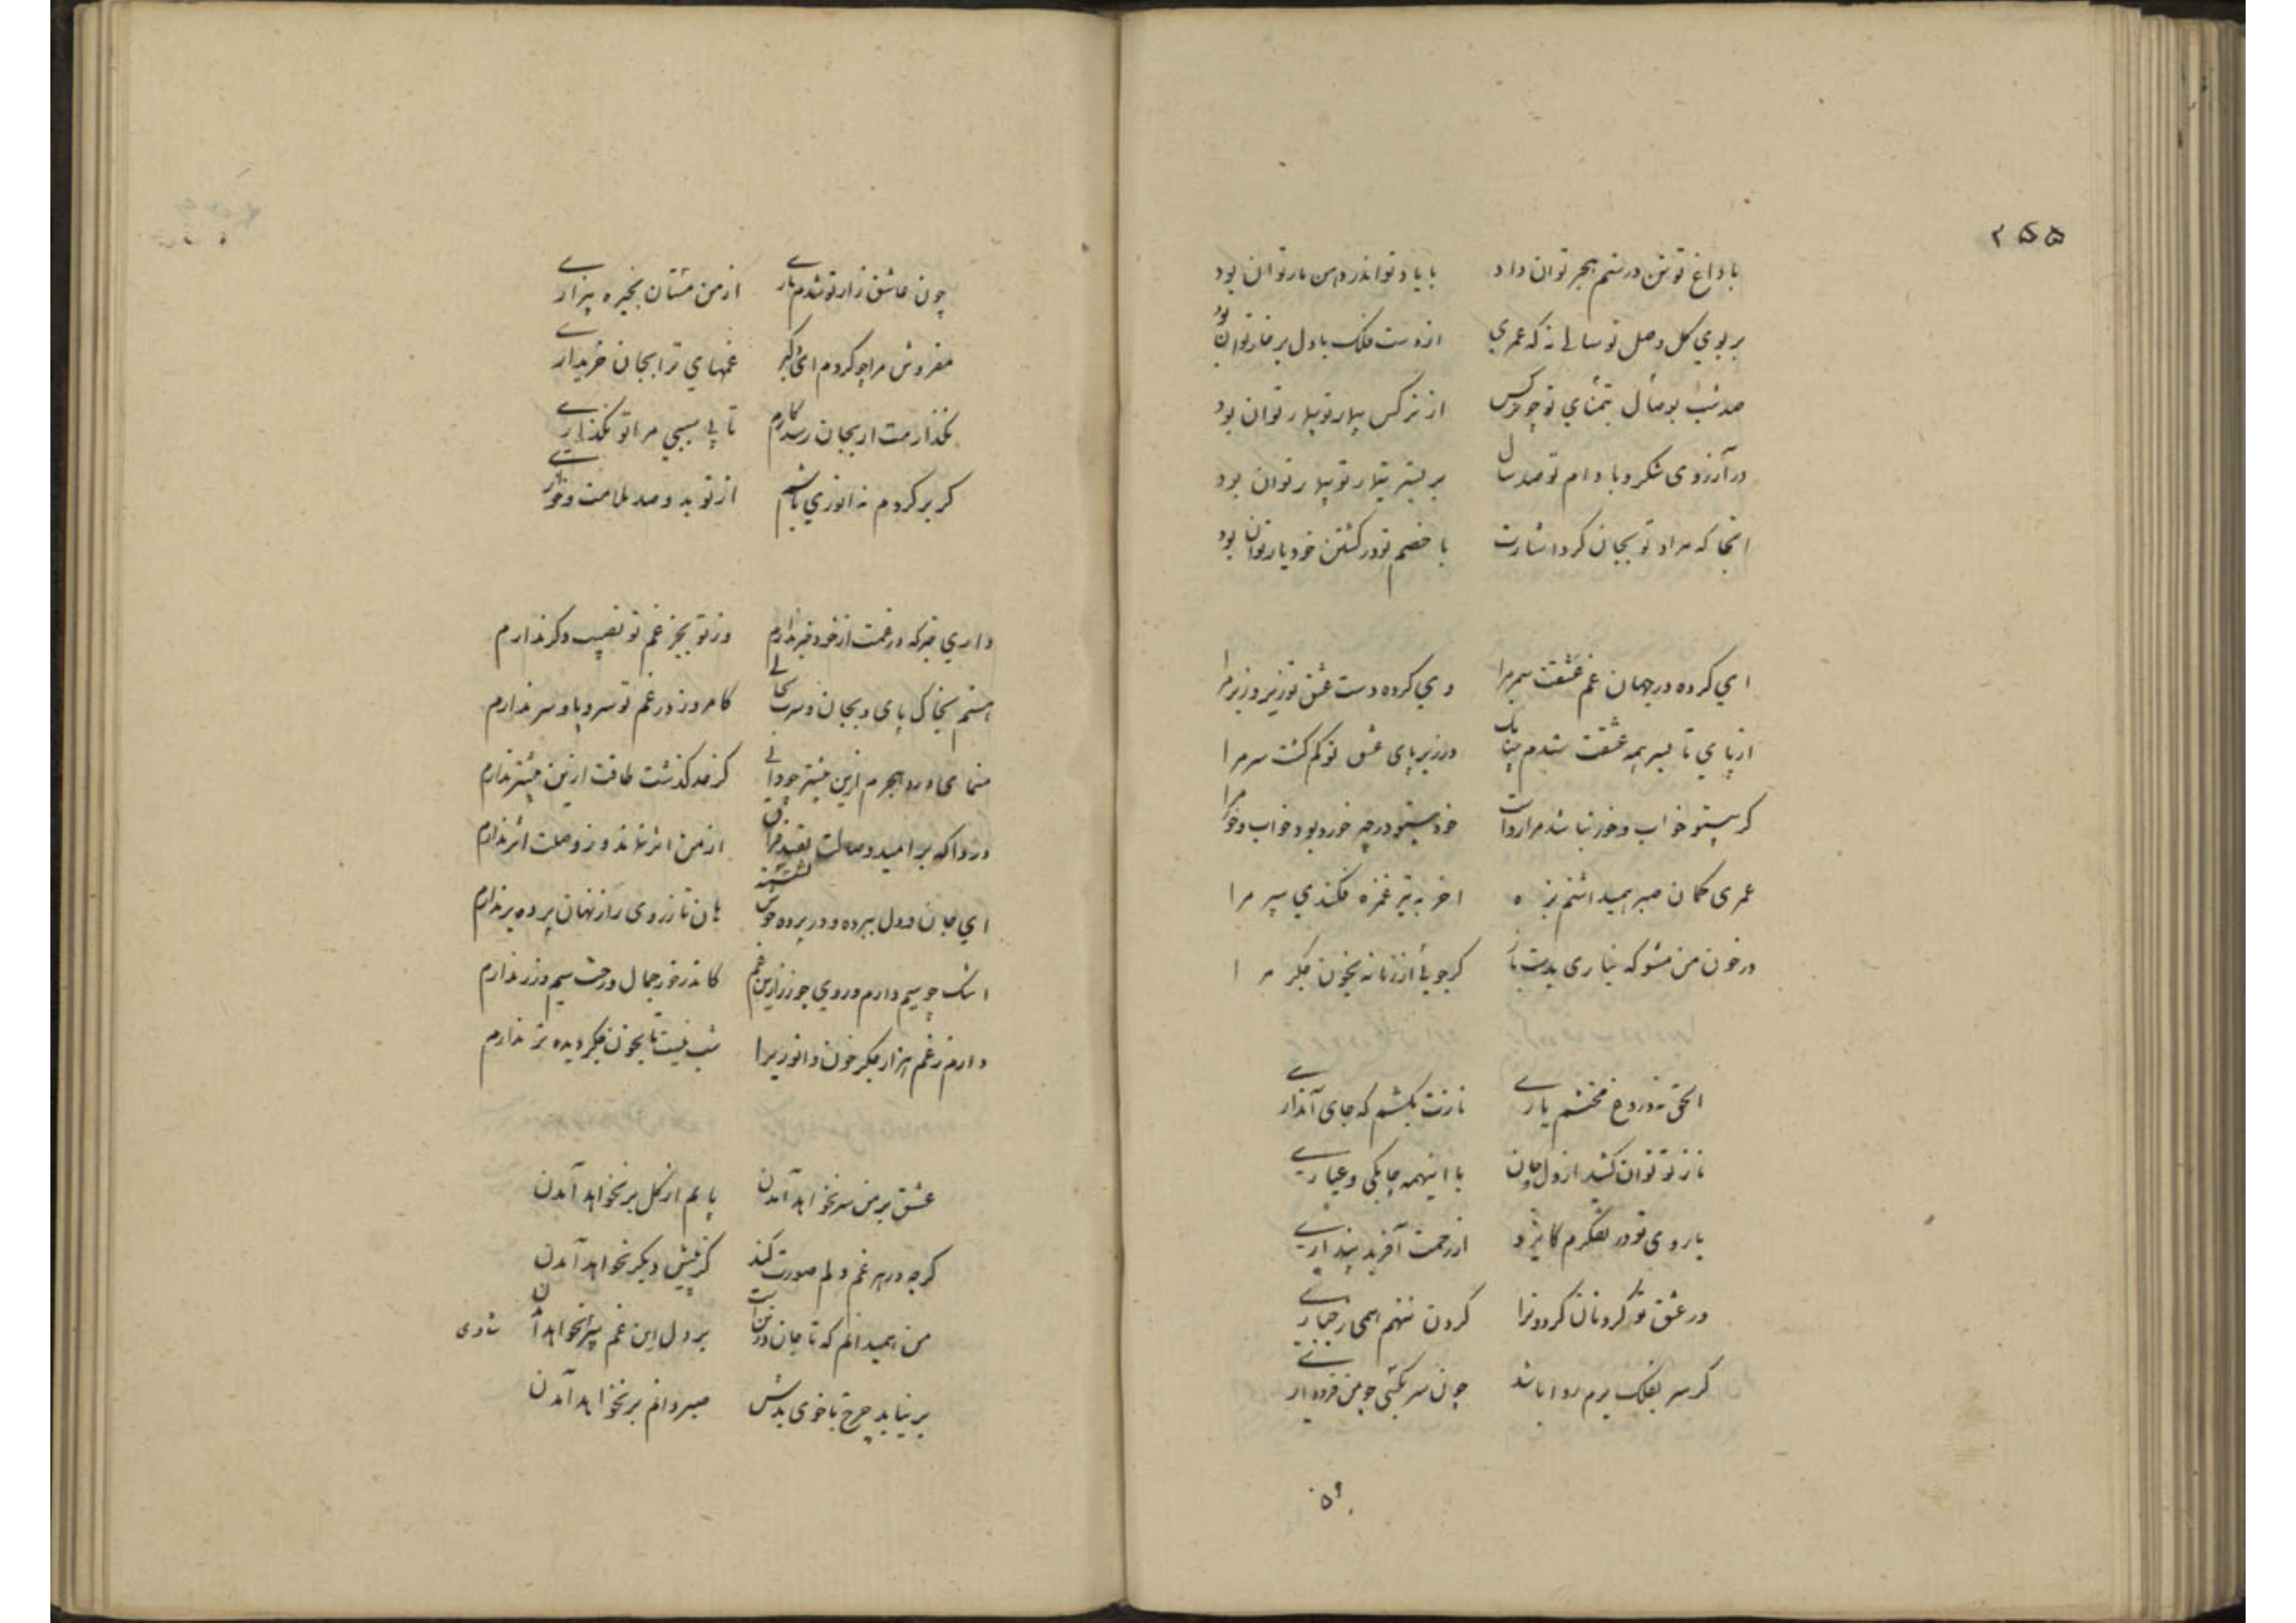 ۲۵۵
با داغ تو تن در ستم هجر توان داد با یاد تو اندر دهن مار توان بود
بر بوی گل وصل تو سالی نه که عمری از دست فلک با دل پر خار توان بود
صد شب بوصال بتمنای تو چون نرکس از نرکس بیمار تو بیمار توان بود
در آرزوی شکر و بادام تو صد سال بر بستر تیمار تو بیمار توان بود
انجا که مراد تو بجان کرد اشارت با خصم تو در کشتن خود یار توان بود
ای کرده در جهان غم عشقت سمر مرا وی کرده دست عشق تو زیر و زبر مرا
از پای تا بسر همه عشقت شدم چنانک در زیر پای عشق تو کم کشت سر مرا
کر بیتو خواب و خور نباشد مرا رواست خود بیتو در چه خورد بود خواب و خور مرا
عمری کمان صبر همیداشتم بزه اخر به تیر غمزه فکندی سپر مرا
در خون من مشو که نیاری بدست باز کر جوئی از زمانه بخون جکر مرا
الحق نه دروغ محتشم یاری نازت بکشم که جای آنداری
ناز تو توان کشید از دل و جان با اینهمه چابکی و عیاری
با روی تو در تفکرم کایزد از رحمت آفرید پنداری
در عشق تو کردنان کردونرا کردن ننهم همی ز جباری
کر سر بفلک برم روا باشد چون سر بکشی چو من فرود اری
۵۹
چون عاشق زار تو شدم باری از من مستان بخیره بیزاری
مفروش مرا چو کردم ای دلبر غمهای ترا بجان خریداری
نکذارمت ار بجان رسد کارم تا بی سببی مرا تو نکذاری
کر بر کردم نه انوری باشم از تو بد و صد ملامت و خواری
داری خبر که در غمت از خود خبر ندارم وز تو بجز غم تو نصیب دکر ندارم
هستم بخاک پای و بجان و سرت بحالی کامروز در غم تو سر و پا و سر ندارم
منمای درد هجرم ازین بیشتر چو دانی کز حد کذشت طاقت ازین بیشتر ندارم
دردا که بر امید وصالت بقید فراق از من اثر نماند و ز وصلت اثر ندارم
ای جان و دل ببرده و در پرده خوش نشسته هان تا ز روی راز نهان پرده بر ندارم
اشک چو سیم دارم و روی چو زر ازین غم کاندر خور جمال و رخت سیم و زر ندارم
دارم ز غم هزار جکر خون و انوریرا شب نیست تا بخون جکر دیده تر ندارم
عشق بر من سر نخواهد آمدن پایم از کل بر نخواهد آمدن
کرچه در هر غم دلم صورت کند کز پیش دیکر نخواهد آمدن
من همیدانم که تا جان در تنست بر دل این غم سر نخواهد آمدن شادی
بر نیاید چرخ با خوی بدش صبر دانم بر نخواهد آمدن